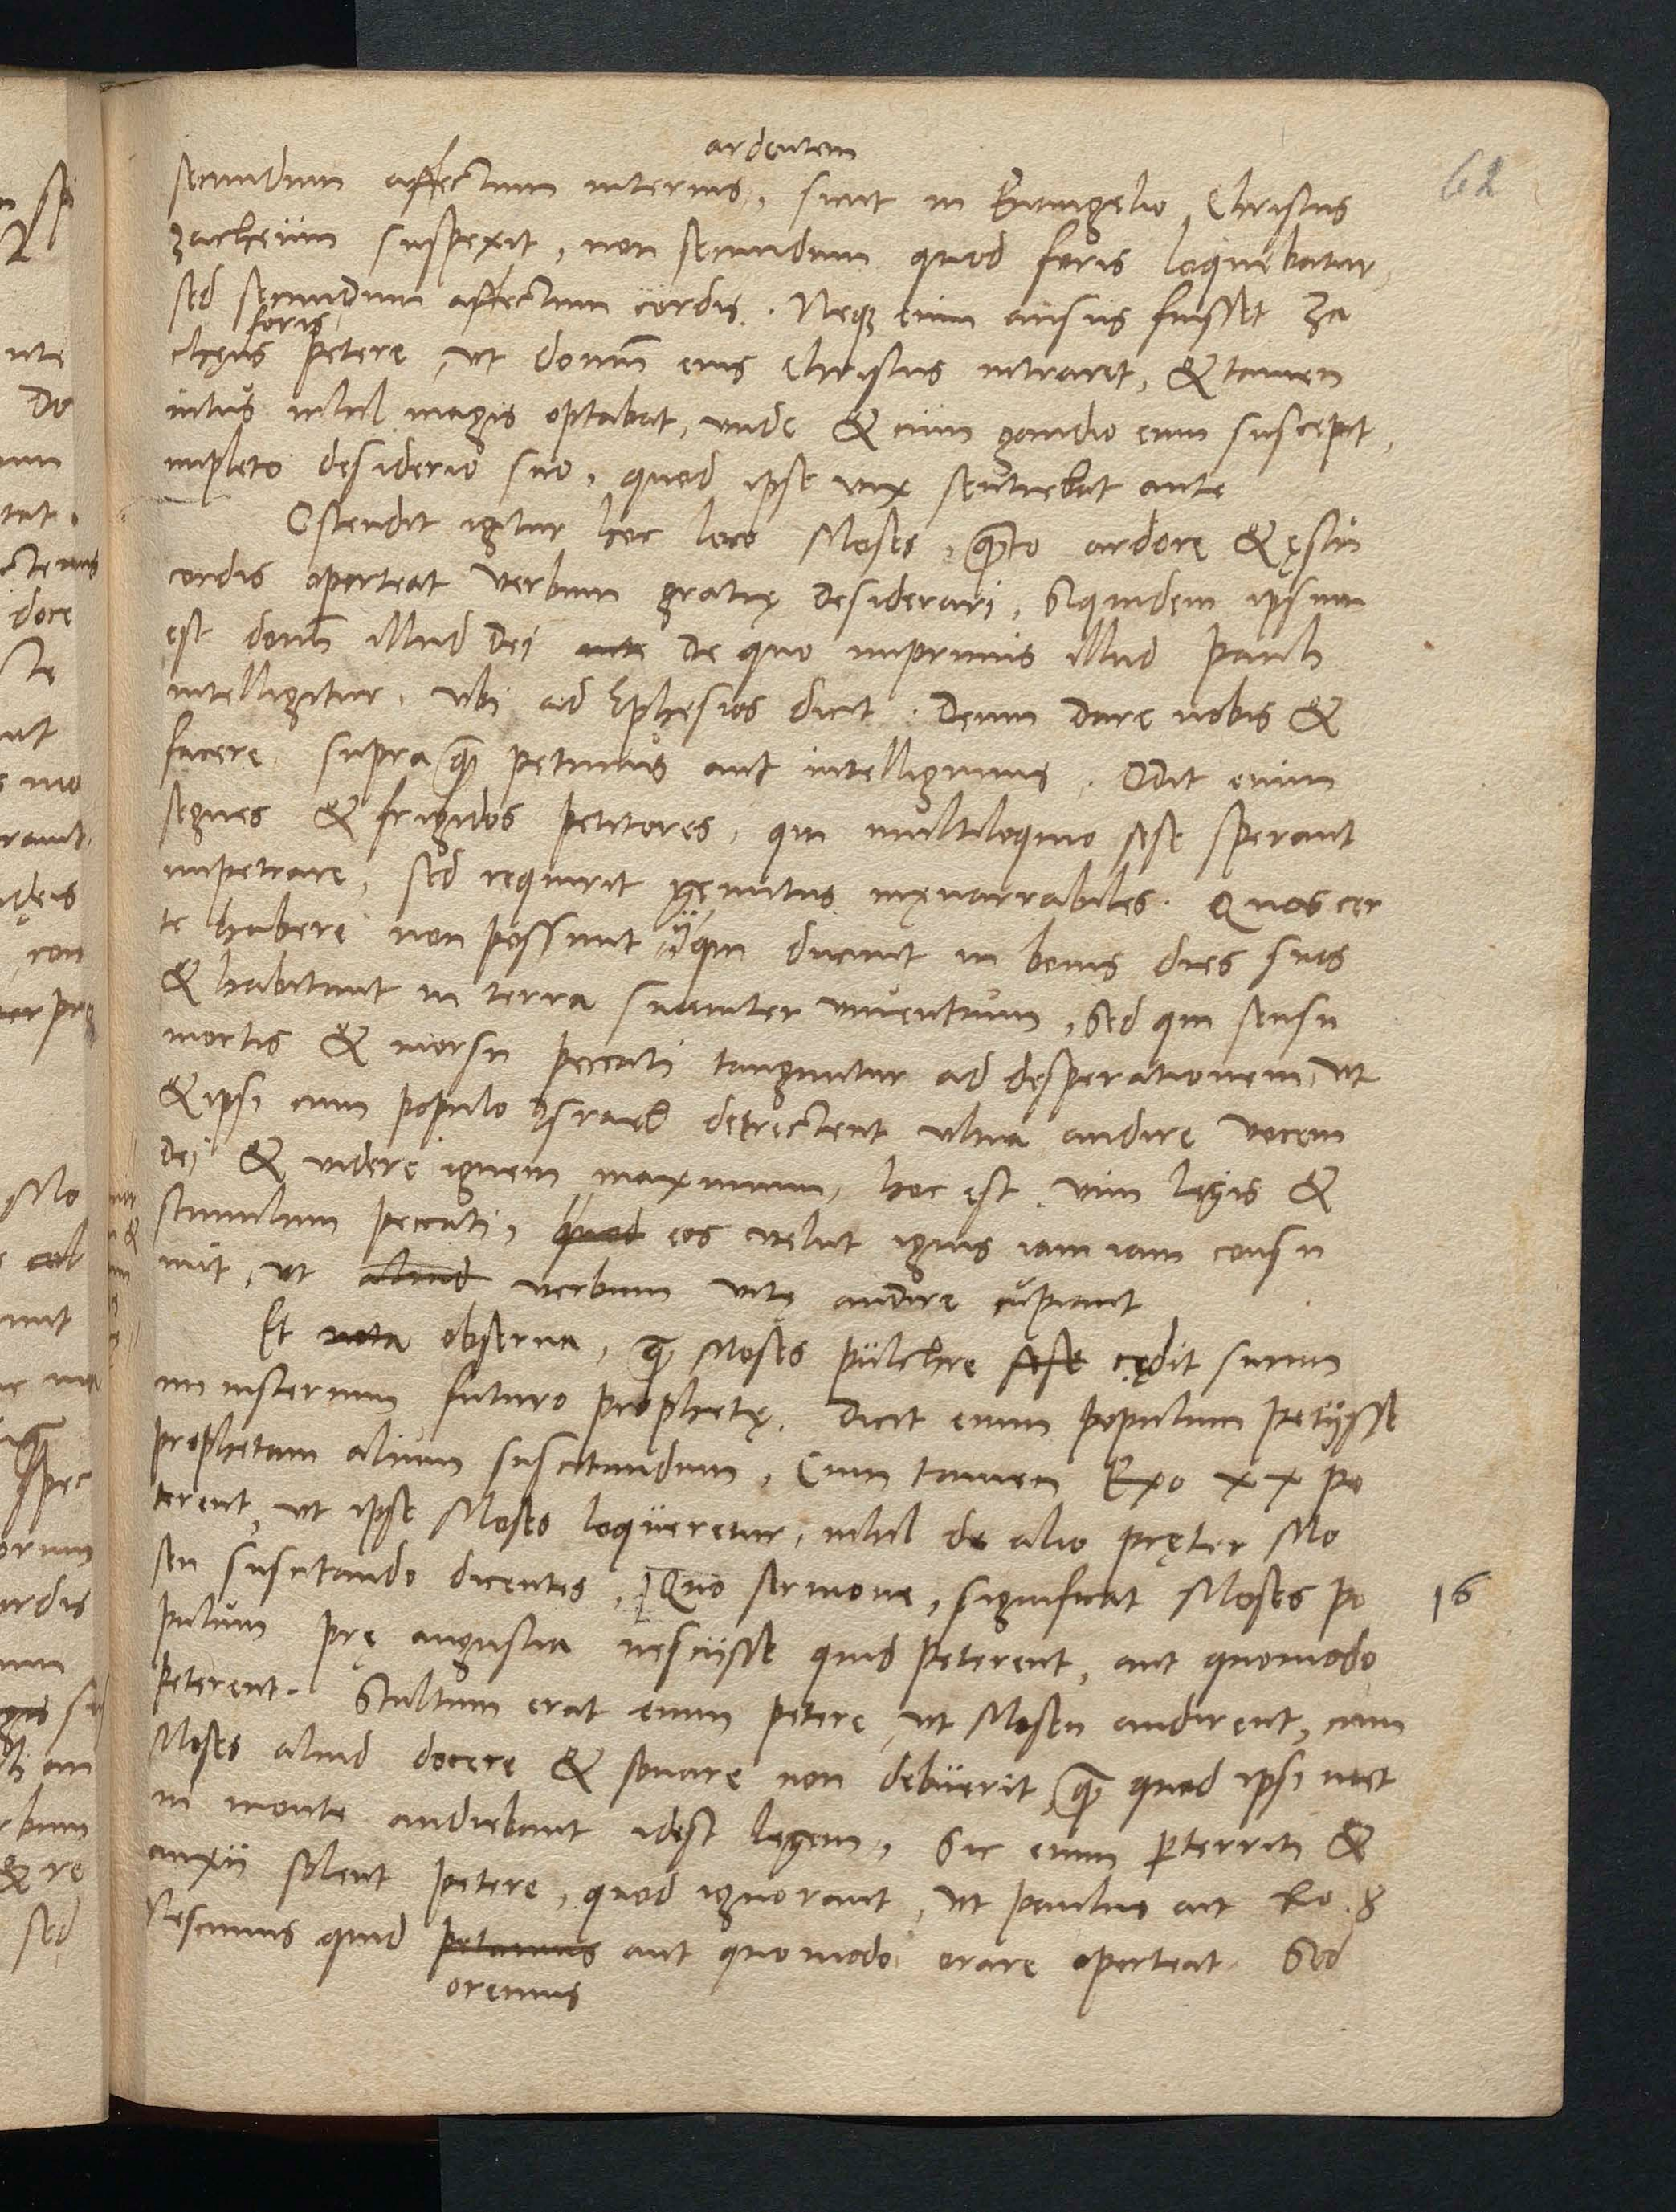 62
ardentem
secundum affectum internus, sicut in Euangelio Christus
zacheum suspexit, non secundum quod foris loquebatur,
sed secundum affectum cordis. Neq; enim ausus fuisset Za
foris
chęus petere, ut domū eius Christus intraret, & tamen
intus nihil magis optabat, unde & cum gaudio eum suscepit,
impleto desiderio suo, quod ipse vix sentiebat ante
Ostendit igitur hoc loco Moses, quāto ardore & ęstu
cordis oporteat verbum gratię desiderari, Siquidem ipsum
est donū illud Dei ante de quo imprimis illud Pauli
intelligitur, ubi ad Ephesios dicit. Deum dare nobis &
facere supra quā petimus aut intelligimus. Odit enim
segnes & frigidos petitores, qui multiloquio sese sperant
impetrare, sed requirit gemitus inęnarrabiles. Quos cer
te habere non possunt ij qui ducunt in bonis dies suos
& habitant in terra suauiter viuentium, Sed qui sensu
mortis & morsu peccati tanguntur ad desperationem, ut
& ipsi cum populo Israel detrectent ultra audire vocem
Dei & videre ignem maximum, hoc est vim legis &
stimulum peccati, quod eos velut ignis iam iam consu
mit, ut aliud verbum vitę audire cupiant
Et nota obserua, quā Moses pulchre sese cędit suum
ministerium futuro prophetę. Dicit enim populum petijsse
prophetam alium suscitandum, Cum tamen Exo xx pe
terent, ut ipse Moses loqueretur, nihil de alio pręter Mo
sen suscitando dicentes, Quo sermone, significat Moses po
16
pulum prę angustia nescijsse quid peterent, aut quomodo
peterent. Stultum erat enim petere, ut Mosen audirent, cum
Moses aliud docere & sonare non debuerit, quā quod ipsi met
in monte audiebant idest legem, Sic enim pterriti &
anxii solent petere, quod ignorant, ut Paulus ait Ro. 8
Nescimus quid petamus aut quomodo orare oporteat Sed
oremus